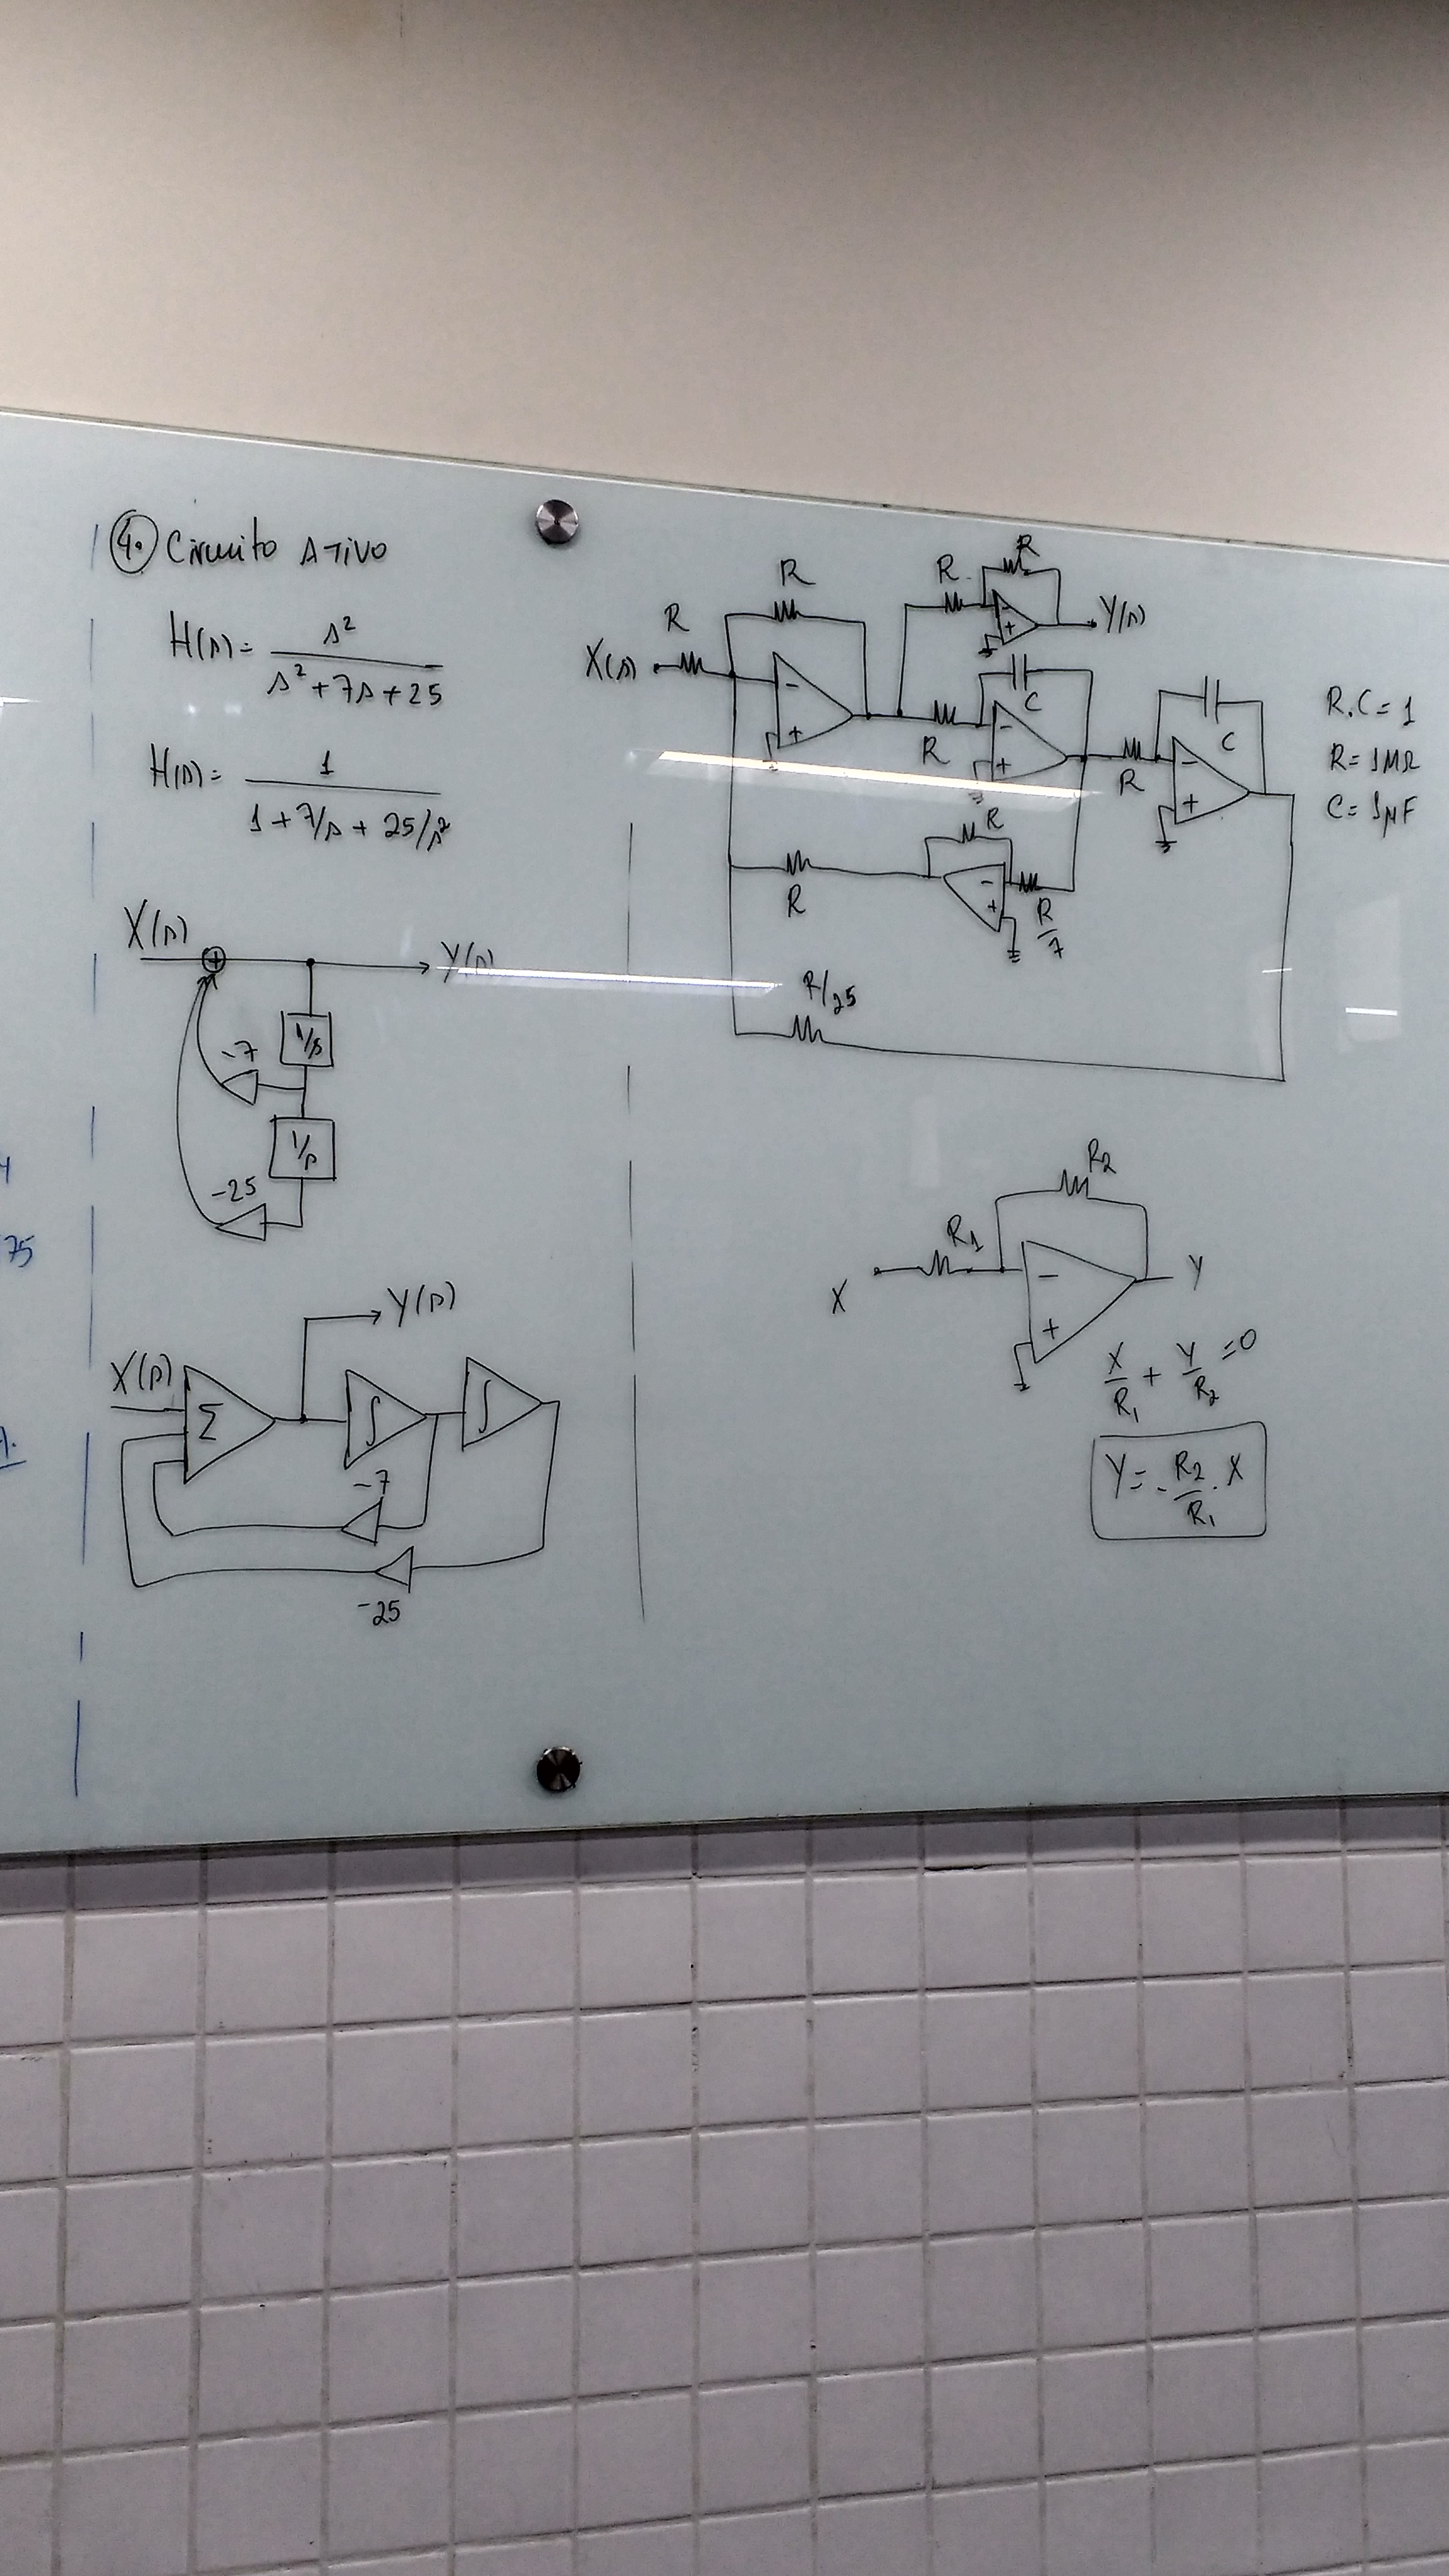 4. Circuito Ativo
H(s) = s²/(s² + 7s + 25)
H(s) = 1/(1 + 7/s + 25/s²)
X(s)
+
Y(s)
1/s
-7
1/s
-25
Y(s)
X(s)
Σ
∫
∫
-7
-25
75
R
R
X(s)
-
+
R
R
-
+
Y(s)
R
C
-
+
R
C
-
+
R
R
-
+
R/7
R/25
R.C = 1
R = 1MΩ
C = 1μF
R2
R1
X
-
+
Y
X/R1 + Y/R2 = 0
Y = - R2/R1 . X